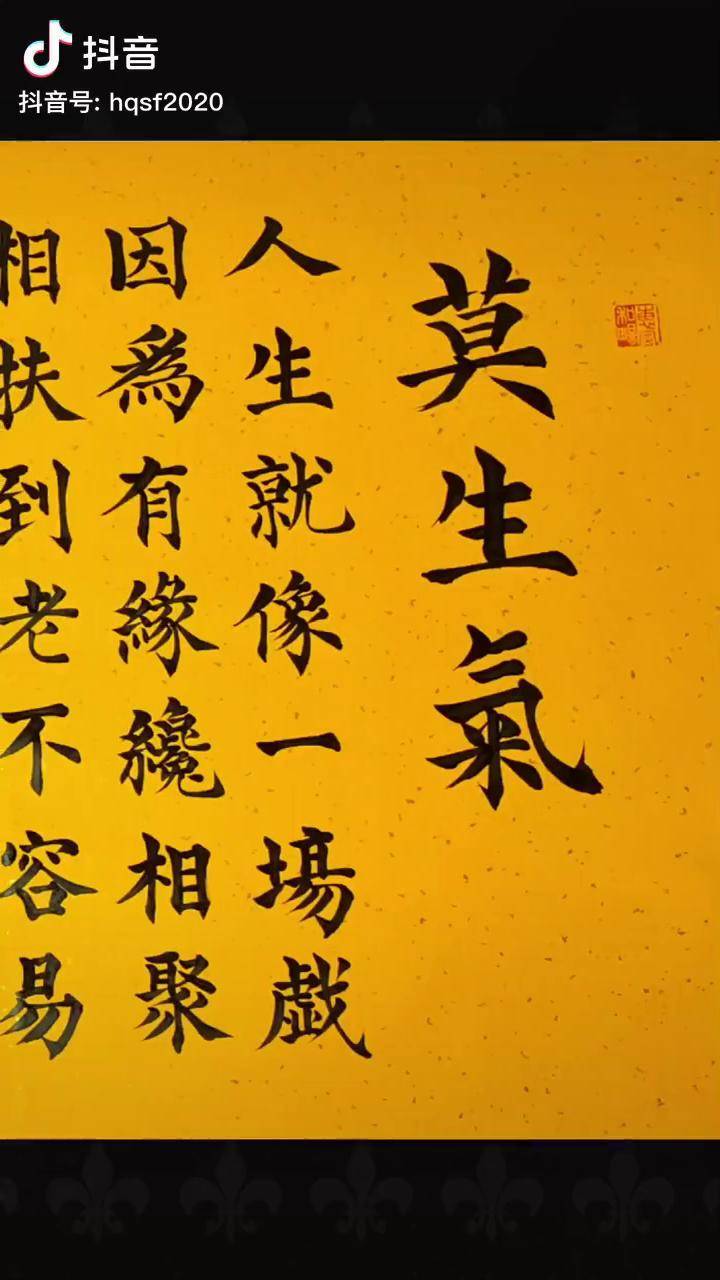 抖音
抖音号: hqsf2020
莫生氣
人生就像一場戲
因爲有緣纔相聚
相扶到老不容易